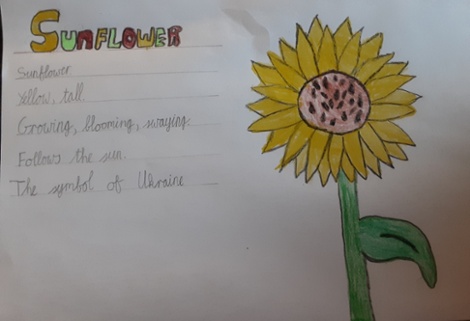 SUNFLOWER
Sunflower
Yellow, tall.
Growing, blooming, swaying
Follows the sun.
The symbol of Ukraine